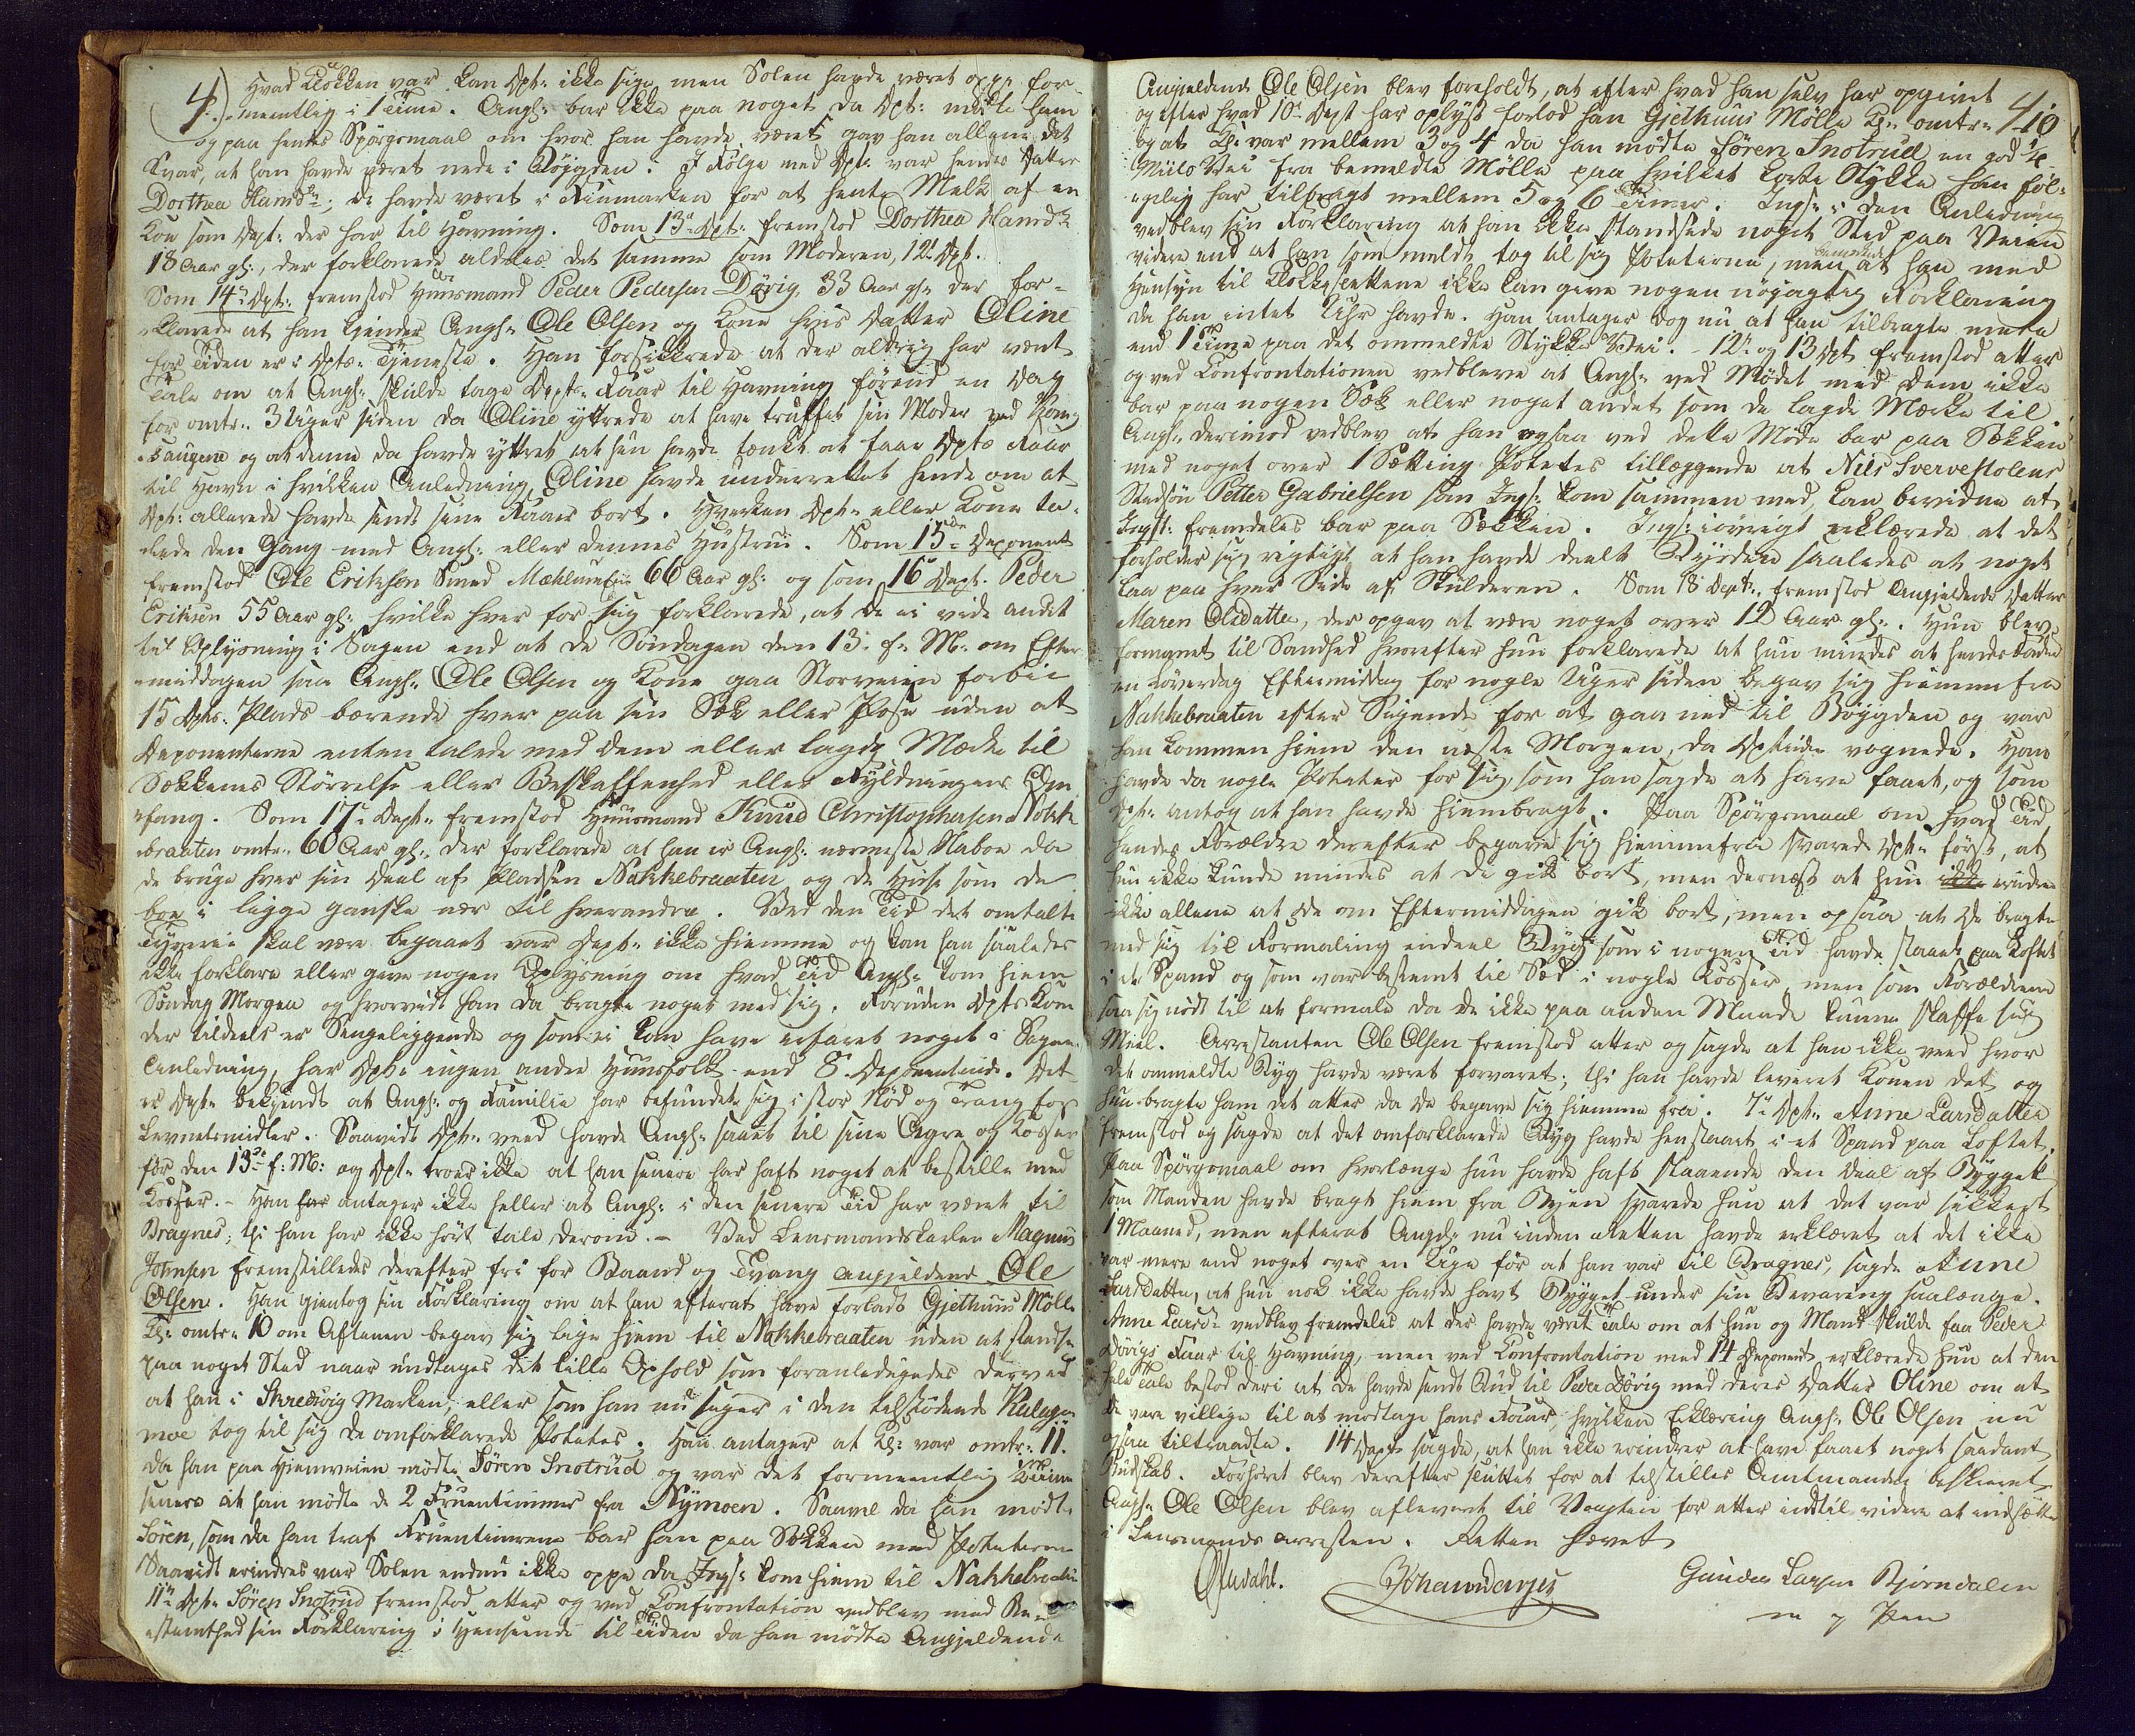 4.) Hvad Klokken var kan Dpt: ikke sige, men Solen havde været oppe for-
mentlig i 1 Time. Angj: bar ikke paa noget da Dpt: mødte ham
og paa hendes Spörgsmaal om hvor han havde været gav han allene det
Svar, at han havde været nede i Böygden. I Følge med Dpt: var hendes Datter
Dorthea Hansdr; de havde været i Finmarken for at hente Melk af en
Koe som Dept: der har til Havning. Som 13de Dpt: fremstod Dorthea Hansdr
18 Aar gl:, der forklarede aldeles det samme som Moderen, 12te Dpt.
Som 14de Dpt: fremstod Huusmand Peder Pedersen Dövig 33 Aar gl: der for-
klarede at han kjender Angj: Ole Olsen og Kone hvis Datter Oline
for Tiden er i Dpts: Tjeneste. Han forsikkrede at der aldrig har vært
Tale om at Angj: skulde tage Dpts: Faar til Havning förend en Dag
for omtr: 3 Uger siden da Oline yttrede at have truffet sin Moder ved Kong
saugene og at denne da havde yttret at hun havde tænkt at faae Dpts Faar
til Havn i hvilken Anledning Oline havde underrettet hende om at
Dpt: allerede havde sendt sine Faar bort. Hverken Dpt: eller Kone ta-
lede den Gang med Angj: eller dennes Hustrue. Som 15de Deponent
fremstod Ole Eriksen Smed 66 Aar gl: og som 16de Dept. Peder
Eriksen 55 Aar gl: hvilke hver for sig forklarede, at de ei vide andet
til Oplysning i Sagen end at de Søndagen den 13de f: M: om Efter-
middagen saae Angj: Ole Olsen og Kone gaa Storveien forbi
15 Dpts: Plads bærende hver paa sin Sæk eller Pose uden at
Deponenterne enten talede med dem eller lagde Mærke til
Sækkenes Störrelse eller Beskaffenhed eller Fyldningens Om-
fang. Som 17de Dept: fremstod Huusmand Knud Christophersen Nakke-
braaten omtr: 60 Aar gl:, der forklarede at han er Angj: nærmeste Naboe da
de bruge hver sin Deel af Pladsen Nakkebraaten og de Huse som de
boe i ligge ganske nær til hverandre. Ved den Tid det omtalte
Tyverie skal være begaaet var Dept: ikke hiemme og kan han saaledes
ikke forklare eller give nogen Oplysning om hvad Tid Angj: kom hiem
Söndag Morgen og hvorvidt han da bragte noget med sig. Foruden Dpts Kone
der tildeels er Sengeliggende og som ei kan have erfaret noget i Sagens
Anledning, har Dpt: ingen andre Huusfolk end 8. Deponentinde. Det
er Dpt: bekjendt at Angj: og Familie har befundet sig i stor Nød og Trang for
Levnetsmidler. Saavidt Dpt: veed havde Angj: saaet til sine Agre og Kosser
för den 13de f: M: og Dpt: troer ikke at han senere har haft noget at bestille med
Kosser. - Han antager ikke heller at Angj: i den senere Tid har været til
Bragnes; thi han har ikke hört tale derom. - Ved Lensmandskarlen Magnus
Johnsen fremstilledes derefter fri for Baand og Tvang Angjeldende Ole
Olsen. Han gjentog sin Forklaring om at han efterat have forladt Gjethuus Mölle
Kl: omtr: 10 om Aftenen begav sig lige hjem til Nakkebraaten uden at standse
paa noget Sted naar undtages det lille Ophold som foranledigedes derved
at han i Skredsvig Marken, eller som han nu siger i den tilstödende
moe tog til sig de omforklarede Potetes. Han antager at Kl: var omtr: 11.
da han paa Hjemveien mødte Sören Snotrud og var det formeentlig 2 Timer
senere at han mødte de 2 Fruentimmer fra Nÿmoen. Saavel da han mødte
Sören, som da han traf Fruentimrene bar han paa Sækken med Poteterne
Saavidt erindres var Solen endnu ikke oppe da Ingst: kom hiem til Nakkebraaten
11te Dpt: Sören Snotrud fremstod atter og ved Confrontation vedblev med Be-
stemthed sin Forklaring i Henseende til Tiden da han mødte Angjeldende
4
10
Angjeldende Ole Olsen blev foreholdt, at efter hvad han selv har opgivet
og efter hvad 10de Dept har oplyst forlod han Gjethuus Mölle Kl: omtr:
og at Kl: var mellem 3 og 4 da han mødte Sören Snotrud en god 1/4
Miils Vei fra bemeldte Mölle paa hvilket korte Stykke han föl-
gelig har tilbragt mellem 5 og 6 Timer. Ingst: i den Anledning
vedblev sin Forklaring at han ikke standsede noget Sted paa Veien
videre end at han som meldt tog til sig Poteterne, men bemærkede at han med
Hensyn til Klokkeslettene ikke kan give nogen nöjagtig Forklaring
da han intet Uhr havde. Han antager dog nu at han tilbragte mere
end 1 Time paa det ommeldte Stykke Vei. - 12te og 13 Dpt fremstod atter
og ved Confrontationen vedbleve at Angj: ved Mødet med dem ikke
bar paa nogen Sæk eller noget andet som de lagde Mærke til
Angj: derimod vedblev at han ogsaa ved dette Møde bar paa Sækken
med noget over 1 Sætting Potetes tillæggende at Nils Svervestolens
Stedsön Petter Gabrielsen som Ingst: kom sammen med, kan bevidne at
Ingst: fremdeles bar paa Sækken. Ingst: iövrigt erklærede at det
forholder sig rigtigt at han havde deelt Byrden saaledes at noget
laa paa hver Side af Skulderen. Som 18de Dept: fremstod Angjeldendes Datter
Maren Olsdatter, der opgav at være noget over 12 Aar gl:. Hun blev
formanet til Sandhed hvorefter hun forklarede at hun mindes at hendes Fader
en Löverdag Eftermiddag for nogle Uger siden begav sig hiemmefra
Nakkebraaten efter Sigende for at gaa ned til Böygden og var
han kommen hiem den næste Morgen, da Dptinden vognede. Han
havde da nogle Poteter for sig, som han sagde at have faaet, og som
Dpt: antog at han havde hiembragt. Paa Spörgsmaal om hvad Tid
hendes Forældre derefter begave sig hiemmefra svarede Dpt: først, at
hun ikke kunde mindes at de gik bort, men dernæst at hun ikke erindrer
ikke allene at de om Eftermiddagen gik bort, men ogsaa at de bragte
med sig til Formaling endeel Byg som i nogen Tid havde staaet paa Loftet
i et Spand og som var bestemt til Sæd i nogle Kosser, men som Forældrene
saae sig nödt til at formale da de ikke paa anden Maade kunne skaffe sig
Meel. Arrestanten Ole Olsen fremstod atter og sagde at han ikke veed hvor
det ommeldte Byg havde været forvaret; thi han havde leveret Konen det og
hun bragte ham det atter da de begave sig hiemme fra. 7de Dpt: Anne Larsdatter
fremstod og sagde at det omforklarede Byg havde henstaaet i et Spand paa Loftet.
Paa Spörgsmaal om hvorlænge hun havde haft staaende den Deel af Bygget
som Manden havde bragt hiem fra Byen svarede hun at det var sikkert
1 Maaned, men efterat Angj: nu inden Retten havde erklæret at det ikke
var mere end noget over en Uge för at han var til Bragnes, sagde Anne
Larsdatter, at hun nok ikke havde havt Bygget under sin Bevaring saalænge.
Anne Larsdr vedblev fremdeles at der havde været Tale om at hun og Mand skulde faa Peder
Dövigs Faar til Havning, men ved Confrontation med 14 Deponent erklærede hun at den
hele Tale bestod deri at de havde sendt Bud til Peder Dövig med deres Datter Oline om at
de vare villige til at modtage hans Faar, hvilken Erklæring Angj: Ole Olsen nu
ogsaa tiltraadte. 14 Dept sagde, at han ikke erindrer at have faaet noget saadant
Budskab. Forhöret blev derefter sluttet for at tilstilles Amtmanden beskrevet
Angj: Ole Olsen blev afleveret til Vagten for atter indtil videre at indsættes
i Lensmands arresten. Retten hævet
Gunder Larsen Bjørndalen
m p Pen